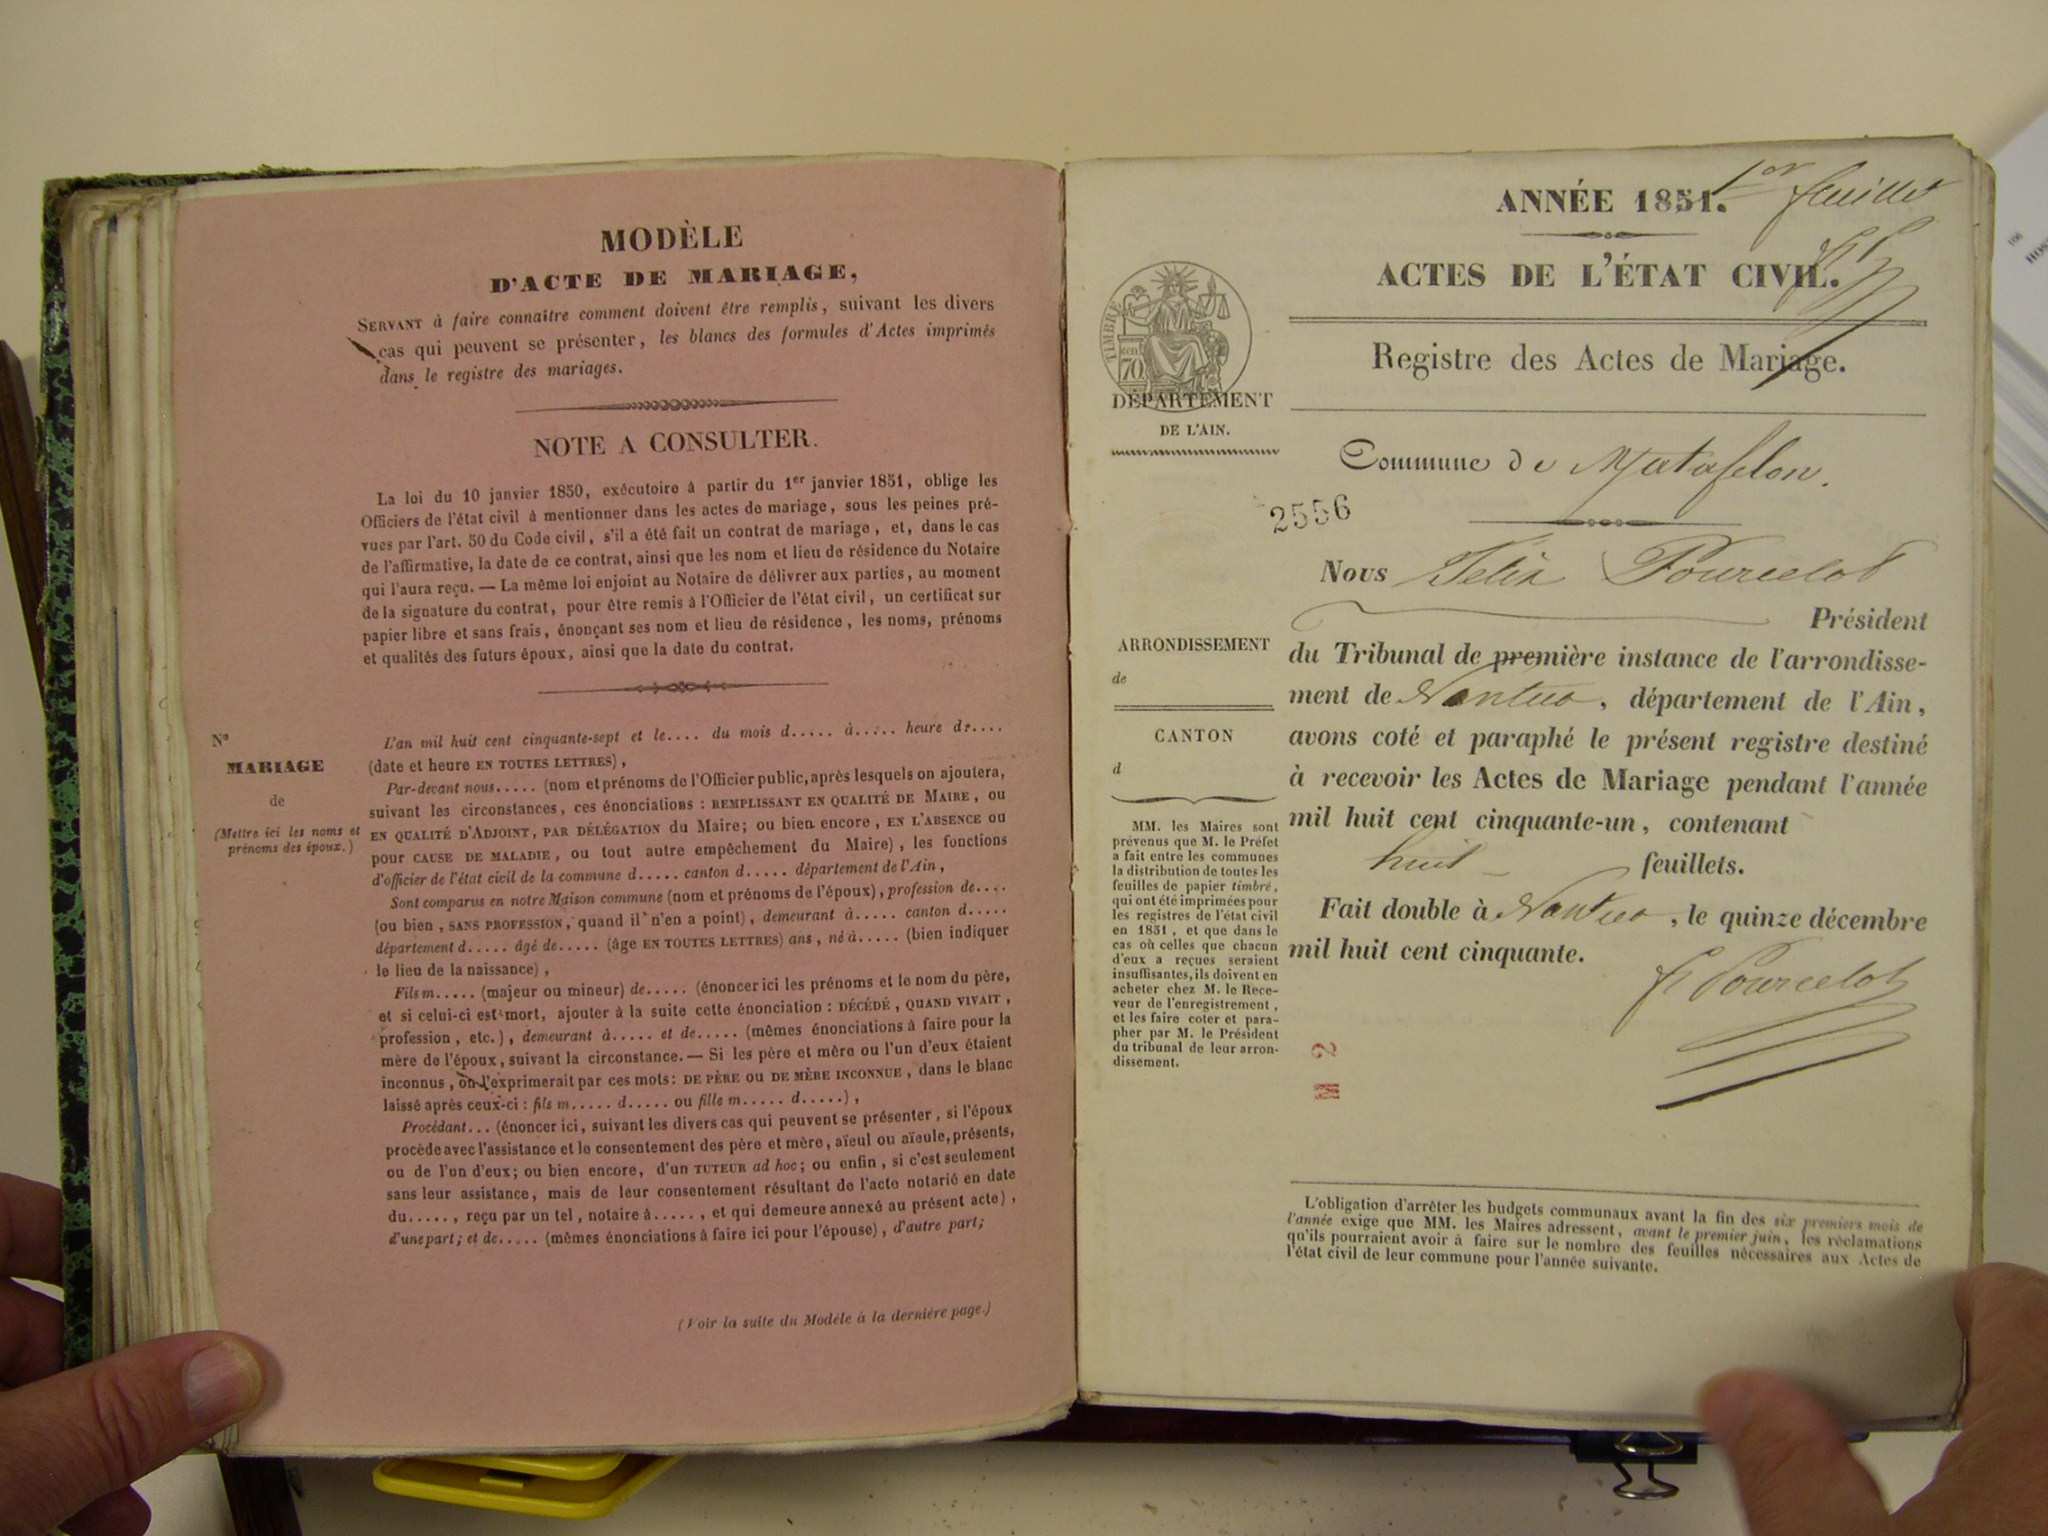 MODÈLE
D'ACTE DE MARIAGE,
SERVANT à faire connaître comment doivent être remplis, suivant les divers
cas qui peuvent se présenter, les blancs des formules d'Actes imprimés
dans le registre des mariages.
NOTE A CONSULTER.
La loi du 10 janvier 1850, exécutoire à partir du 1er janvier 1851, oblige les
Officiers de l'état civil à mentionner dans les actes de mariage, sous les peines pré-
vues par l'art. 50 du Code civil, s'il a été fait un contrat de mariage, et, dans le cas
de l'affirmative, la date de ce contrat, ainsi que les nom et lieu de résidence du Notaire
qui l'aura reçu. — La même loi enjoint au Notaire de délivrer aux parties, au moment
de la signature du contrat, pour être remis à l'Officier de l'état civil, un certificat sur
papier libre et sans frais, énonçant ses nom et lieu de résidence, les noms, prénoms
et qualités des futurs époux, ainsi que la date du contrat.
No
MARIAGE
de
(Mettre ici les noms et
prénoms des époux.)
L'an mil huit cent cinquante-sept et le.... du mois d..... à..... heure d.....
(date et heure EN TOUTES LETTRES),
Par-devant nous..... (nom et prénoms de l'Officier public, après lesquels on ajoutera,
suivant les circonstances, ces énonciations : REMPLISSANT EN QUALITÉ DE MAIRE, ou
EN QUALITÉ D'ADJOINT, PAR DÉLÉGATION du Maire; ou bien encore, EN L'ABSENCE ou
pour CAUSE DE MALADIE, ou tout autre empêchement du Maire), les fonctions
d'officier de l'état civil de la commune d..... canton d..... département de l'Ain,
Sont comparus en notre Maison commune (nom et prénoms de l'époux), profession de....
(ou bien, SANS PROFESSION, quand il n'en a point), demeurant à..... canton d.....
département d..... âgé de..... (âge EN TOUTES LETTRES) ans, né à..... (bien indiquer
le lieu de la naissance),
Fils m..... (majeur ou mineur) de..... (énoncer ici les prénoms et le nom du père,
et si celui-ci est mort, ajouter à la suite cette énonciation : DÉCÉDÉ, QUAND VIVAIT,
profession, etc.), demeurant à..... et de..... (mêmes énonciations à faire pour la
mère de l'époux, suivant la circonstance. — Si les père et mère ou l'un d'eux étaient
inconnus, on l'exprimerait par ces mots: DE PÈRE ou DE MÈRE INCONNUE, dans le blanc
laissé après ceux-ci : fils m..... d..... ou fille m..... d.....),
Procédant... (énoncer ici, suivant les divers cas qui peuvent se présenter, si l'époux
procède avec l'assistance et le consentement des père et mère, aïeul ou aïeule, présents,
ou de l'un d'eux; ou bien encore, d'un TUTEUR ad hoc; ou enfin, si c'est seulement
sans leur assistance, mais de leur consentement résultant de l'acte notarié en date
du....., reçu par un tel, notaire à....., et qui demeure annexé au présent acte),
d'une part; et de..... (mêmes énonciations à faire ici pour l'épouse), d'autre part;
(Voir la suite du Modèle à la dernière page.)
1er feuillet
ANNÉE 1851.
ACTES DE L'ÉTAT CIVIL.
Registre des Actes de Mariage.
TIMBRE
cen
70
DÉPARTEMENT
DE L'AIN.
Commune de Matafelon.
2556
Nous Félix Pourcelot
Président
du Tribunal de première instance de l'arrondisse-
ment de Nantua, département de l'Ain,
avons coté et paraphé le présent registre destiné
à recevoir les Actes de Mariage pendant l'année
mil huit cent cinquante-un, contenant
huit feuillets.
Fait double à Nantua, le quinze décembre
mil huit cent cinquante.
F. Pourcelot
ARRONDISSEMENT
de
CANTON
d
MM. les Maires sont
prévenus que M. le Préfet
a fait entre les communes
la distribution de toutes les
feuilles de papier timbré,
qui ont été imprimées pour
les registres de l'état civil
en 1851, et que dans le
cas où celles que chacun
d'eux a reçues seraient
insuffisantes, ils doivent en
acheter chez M. le Rece-
veur de l'enregistrement,
et les faire coter et para-
pher par M. le Président
du tribunal de leur arron-
dissement.
L'obligation d'arrêter les budgets communaux avant la fin des six premiers mois de
l'année exige que MM. les Maires adressent, avant le premier juin, les réclamations
qu'ils pourraient avoir à faire sur le nombre des feuilles nécessaires aux Actes de
l'état civil de leur commune pour l'année suivante.